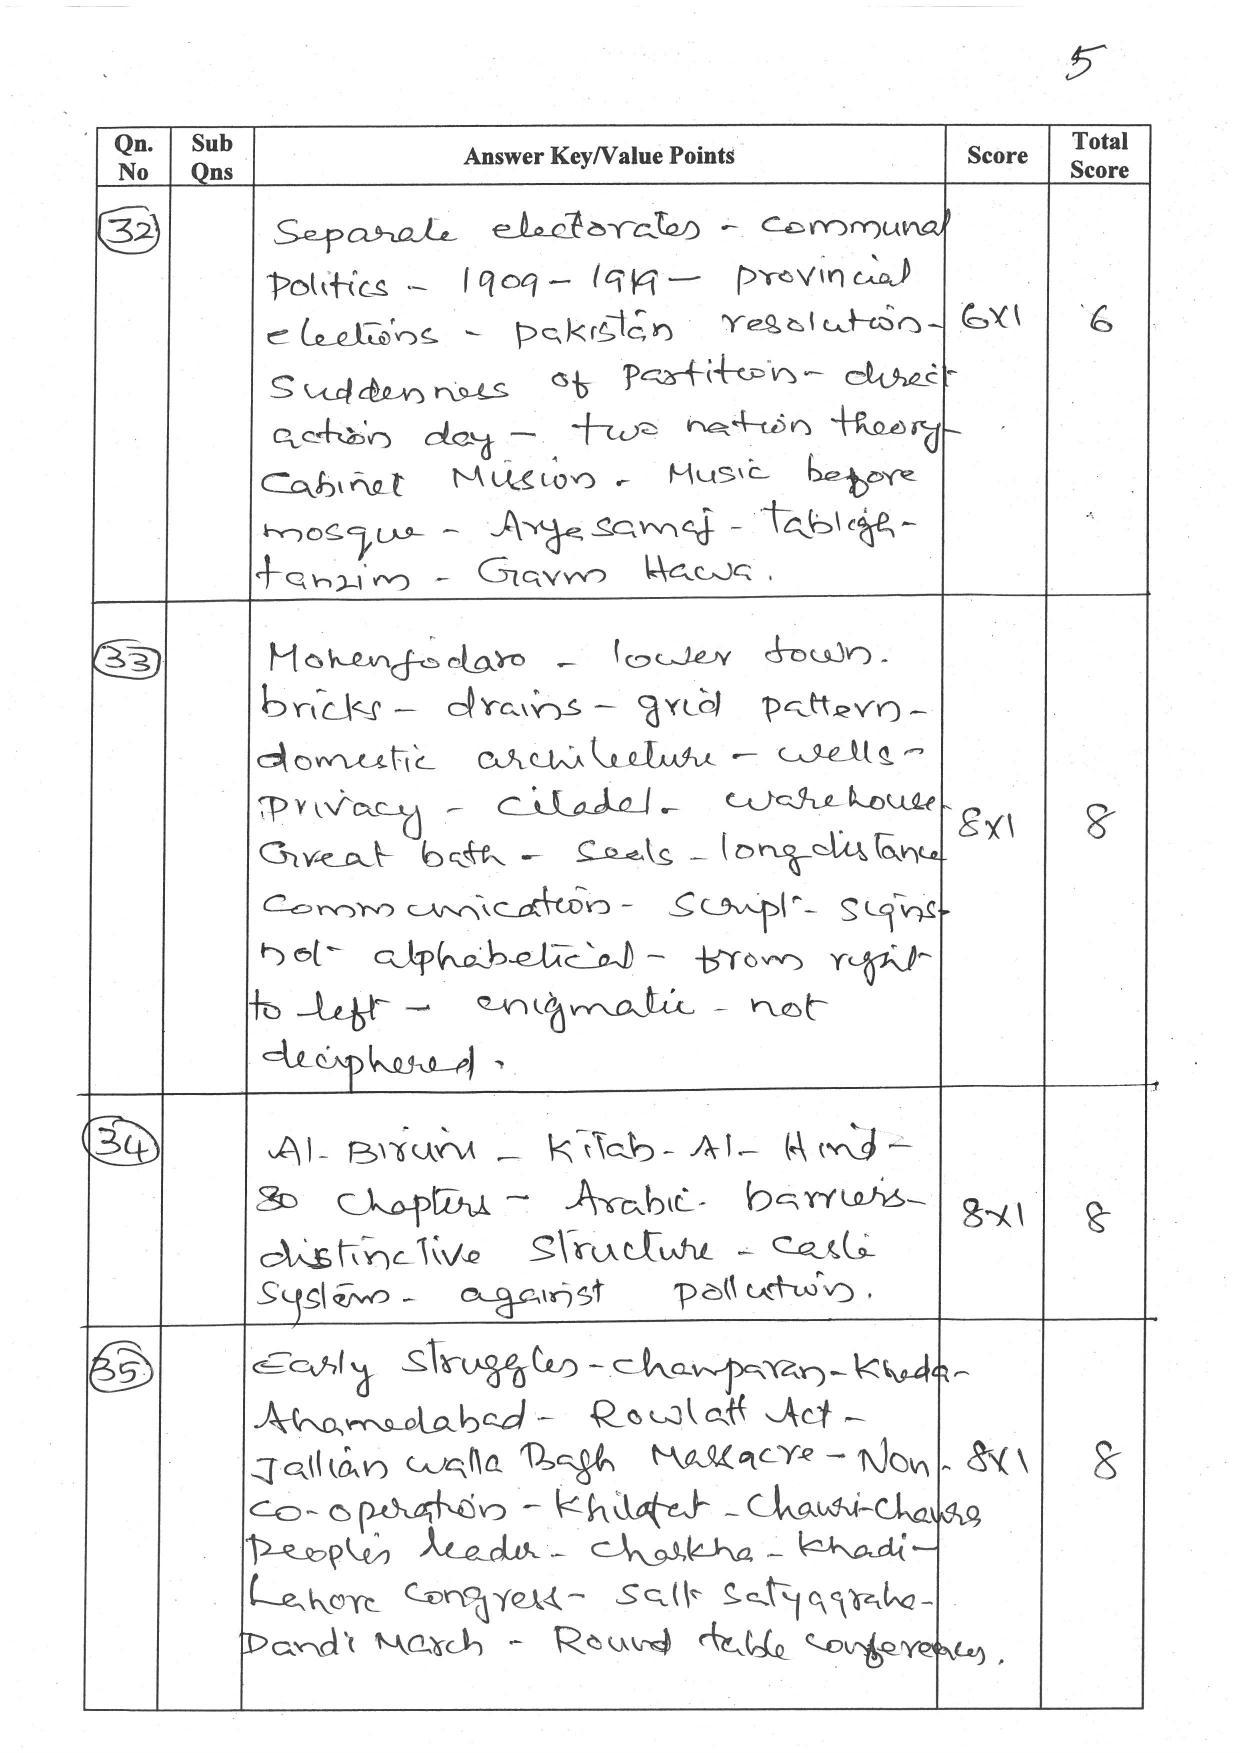 5
Qn. No | Sub Qns | Answer Key/Value Points | Score | Total Score
32
Separate electorates - communal
politics - 1909 - 1919 - provincial
elections - pakistan resolution - 6x1 6
Suddenness of Partition - direct
action day - two nation theory -
Cabinet Mission - Music before
mosque - Aryasamaj - Tabligh -
tanzim - Garm Hawa.
33
Mohenjodaro - lower town.
bricks - drains - grid pattern -
domestic architecture - wells -
privacy - citadel - warehouse
Great bath - seals - long distance 8x1 8
communication - script - signs -
not alphabetical - from right
to left - enigmatic - not
deciphered.
34
Al-Biruni - Kitab-Al-Hind -
80 Chapters - Arabic - barriers -
distinctive structure - caste 8x1 8
System - against pollution.
35
Early struggles - champaran - Kheda -
Ahamedabad - Rowlatt Act -
Jallian walla Bagh Massacre - Non - 8x1 8
co-operation - Khilafat - Chauri-Chaura
People's leader - charkha - khadi -
Lahore Congress - Salt Satyagraha -
Dandi March - Round table conferences.